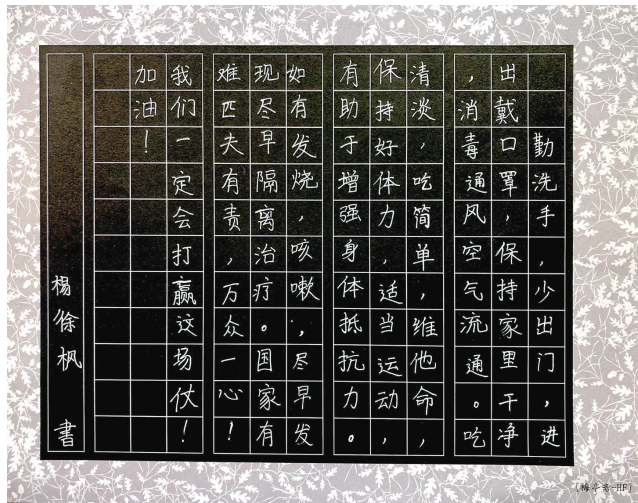 勤洗手，少出门，进
出戴口罩，保持家里干净
，消毒通风，空气流通。吃
清淡，吃简单，维他命，
保持好体力，适当运动，
有助于增强身体抵抗力。
如有发烧，咳嗽，尽早发
现尽早隔离治疗。国家有
难匹夫有责，万众一心！
我们一定会打赢这场仗！
加油！
楊徐枫 書